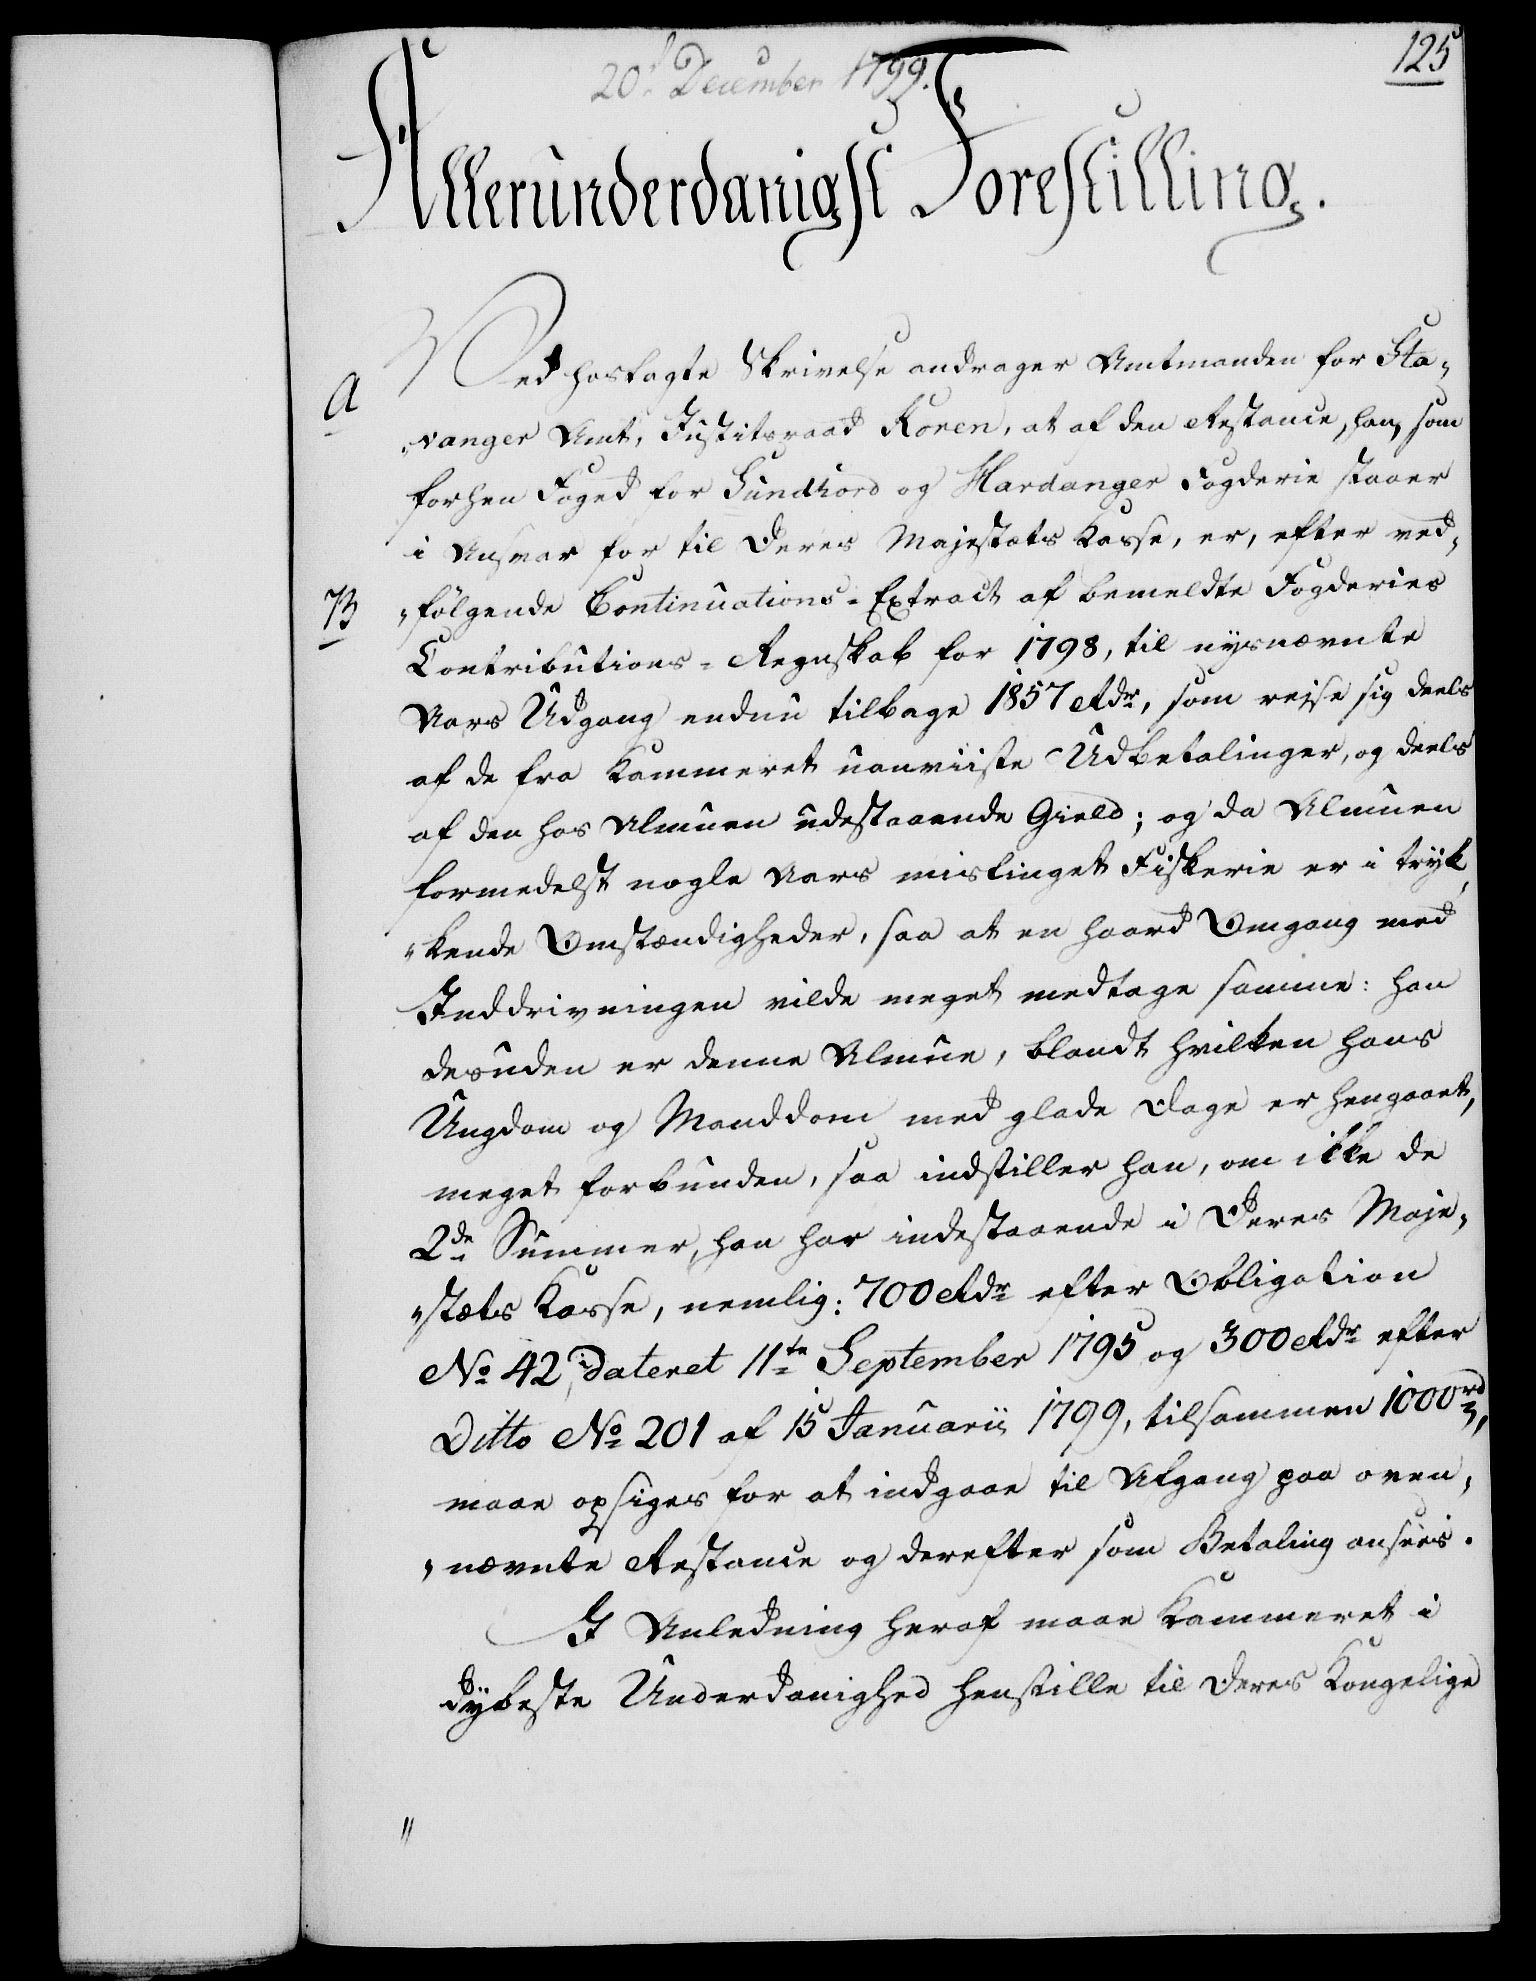 125
20de December 1799.
Allerunderdanigst Forestilling.
A
Ved hoslagte Skrivelse andrager Amtmanden for Sta-
-vanger Amt, Justitsraad Koren, at af den Restance, han, som
forhen Foged for Sundhord og Hardanger Fogderie staaer
i Ansvar for til Deres Majestæts Kasse, er, efter ved-
B
-følgende Continuations-Extract af bemeldte Fogderies
Contributions-Regnskab for 1798, til nysnævnte
Aars Udgang endnu tilbage 1857 Rdr, som rejse sig deels
af de fra Kammeret uanviiste Udbetalinger, og deels
af den hos Almuen udestaaende Gield; og da Almuen
formedelst nogle Aars mislinget Fiskerie er i tryk-
-kende Omstændigheder, saa at en haard Omgang med
Inddrivningen vilde meget medtage samme: han
desuden er denne Almue, blandt hvilken hans
Ungdom og Manddom med glade Dage er hengaaet,
meget forbunden, saa indstiller han, om ikke de
2de Summer, han har indestaaende i Deres Maje-
-stæts Kasse, nemlig: 700 Rdr efter Obligation
No 42, dateret 11te September 1795 og 300 Rdr efter
Ditto No 201 af 15 Januarii 1799, tilsammen 1000 rd,
maae opsiges for at indgaae til Afgang paa oven-
-nævnte Restance og derefter som Betaling ansees.
I Anledning heraf maae Kammeret i
dybeste Underdanighed henstille til Deres Kongelige
"